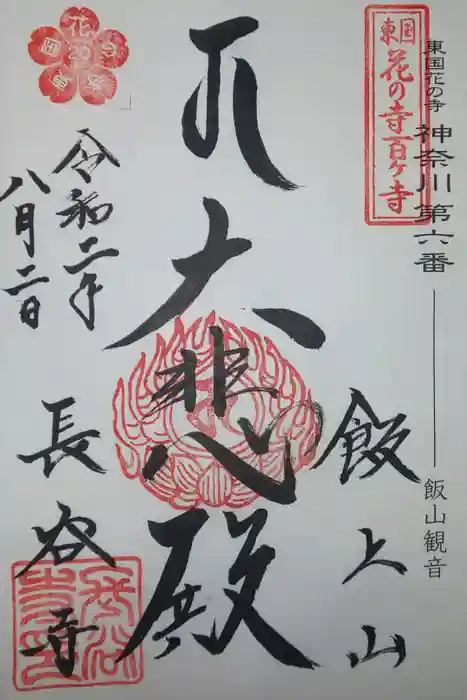 東国
花の寺百ヶ寺
東国花の寺 神奈川 第六番
飯山観音
飯上山
大悲殿
令和二年
八月二日
長谷寺